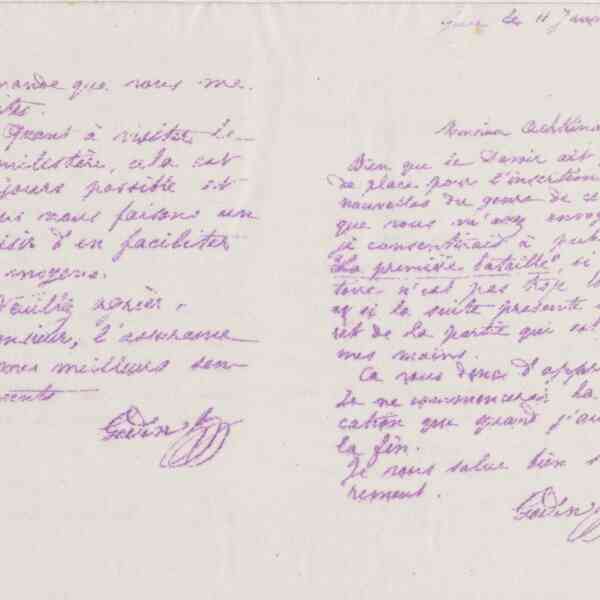 mande que vous me
Quant à visiter le
familistère, cela est
toujours possible et
nous nous faisons un
plaisir d'en faciliter
moyens.
Veuillez agréer,
Monsieur, l'assurance
mes meilleurs sen-
Godin
Guise le 11 Janv
Monsieur
Bien que le Devoir ait
de place pour l'insertion
nouvelles du genre de ce
que vous m'avez envoy
je consentirais à pub
"La première bataille", si
toire n'est pas trop l
et si la suite présente
rêt de la partie qui est
mes mains.
Ca vous donc d'
Je ne commencerai la
cation que quand j'au
la fin.
Je vous salue bien s
rement.
Godin